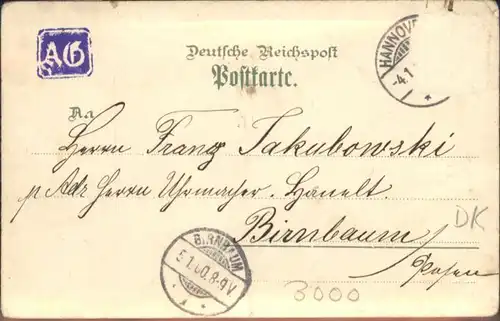 AG
Deutsche Reichspost
Postkarte.
HANNOVER
-4.1
An
Herrn Franz Jakubowski
p Adr Herrn Uhrmacher Hanelt.
Birnbaum
DK
Posen
BIRNBAUM
5.1.00.8-9V.
3000